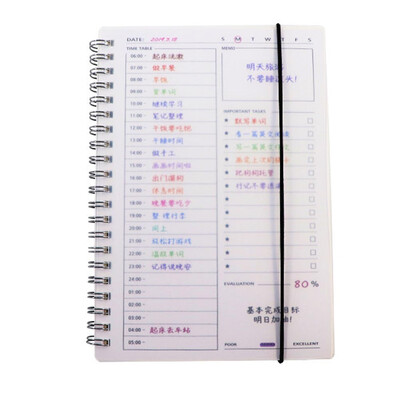 DATE: 2019.3.18
S M T W T F S
TIME TABLE
06:00 - 起床洗漱
07:00 - 做早餐
08:00 - 早饭
09:00 - 背单词
10:00 - 继续学习
11:00 - 笔记整理
12:00 - 午饭要吃饱
13:00 - 午睡时间
14:00 - 做手工
15:00 - 画画时间
16:00 - 出门遛狗
17:00 - 休息时间
18:00 - 晚餐要吃少
19:00 - 整理行李
20:00 - 网上
21:00 - 放松打游戏
22:00 - 温故单词
23:00 - 记得说晚安
00:00 -
01:00 -
02:00 -
03:00 -
04:00 - 起床去车站
05:00 -
MEMO
明天
不要睡过头!
IMPORTANT TASKS
默写单词
看一篇英文
写一篇英文
画完上次的
把狗狗托管
行记不要遗漏
EVALUATION 80 %
基本完成目标
明日加油!
POOR EXCELLENT